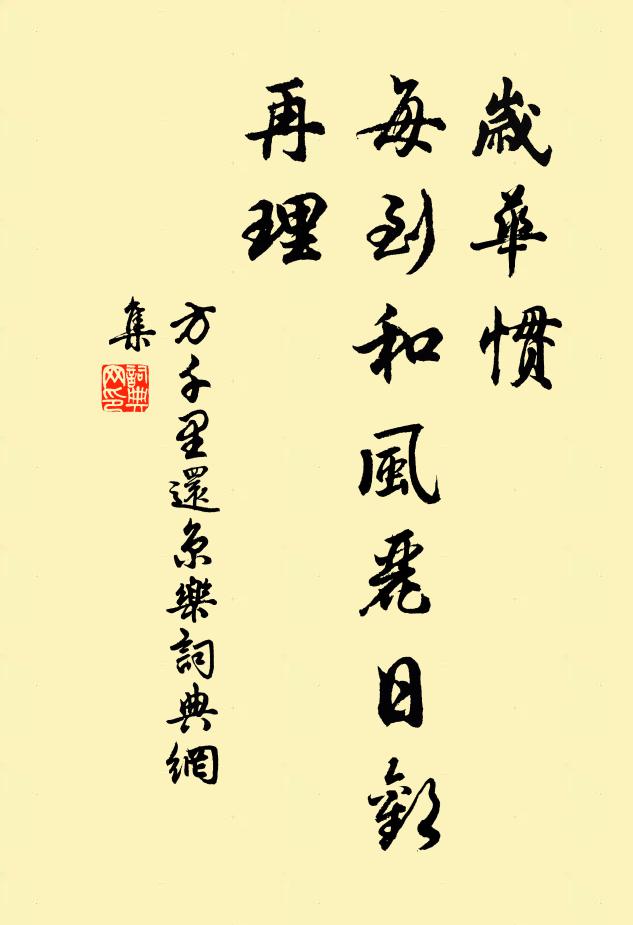 歲華慣
每到和風麗日歡
再理
方千里還京樂詞典網
集
詞典網印